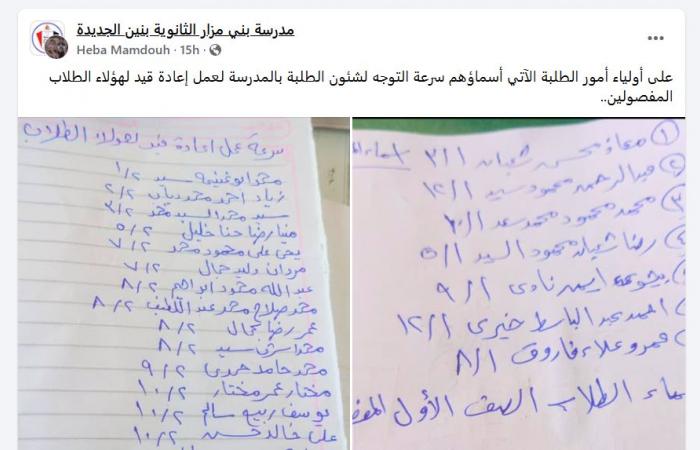 مدرسة بني مزار الثانوية بنين الجديدة
Heba Mamdouh · 15h ·
على أولياء أمور الطلبة الآتي أسماؤهم سرعة التوجه لشئون الطلبة بالمدرسة لعمل إعادة قيد لهؤلاء الطلاب
المفصولين..
سرعة عمل اعادة قيد لهؤلاء الطلاب
محمد ابو غنيمه سيد ١/٢
زياد احمد محمد ٢/٢
سيد محمد السيد محمد ٣/٢
مينا رضا حنا خليل ٥/٢
يحى على محمود محمد ٧/٢
مروان وليد جمال ٧/٢
عبد الله محمود ابراهيم ٨/٢
محمد صلاح محمد عبد اللطيف ٨/٢
عمر رضا جمال ٨/٢
محمد سيد ٨/٢
محمد حامد حمدى ٩/٢
مختار عمر مختار ١٠/٢
يوسف ربيع سالم ١٠/٢
على خالد حسن ١٠/٢
① معاذ محسن شعبان ٣/١
② عبد الرحمن محمود سيد ١٢/١
③ محمد محمود محمد سعد
رضا شعبان محمود السيد ٥/١
ايمن نادى ٩/١
احمد عبد الباسط خيرى ١٢/١
عمرو علاء فاروق ٨/١
الطلاب الصف الأول